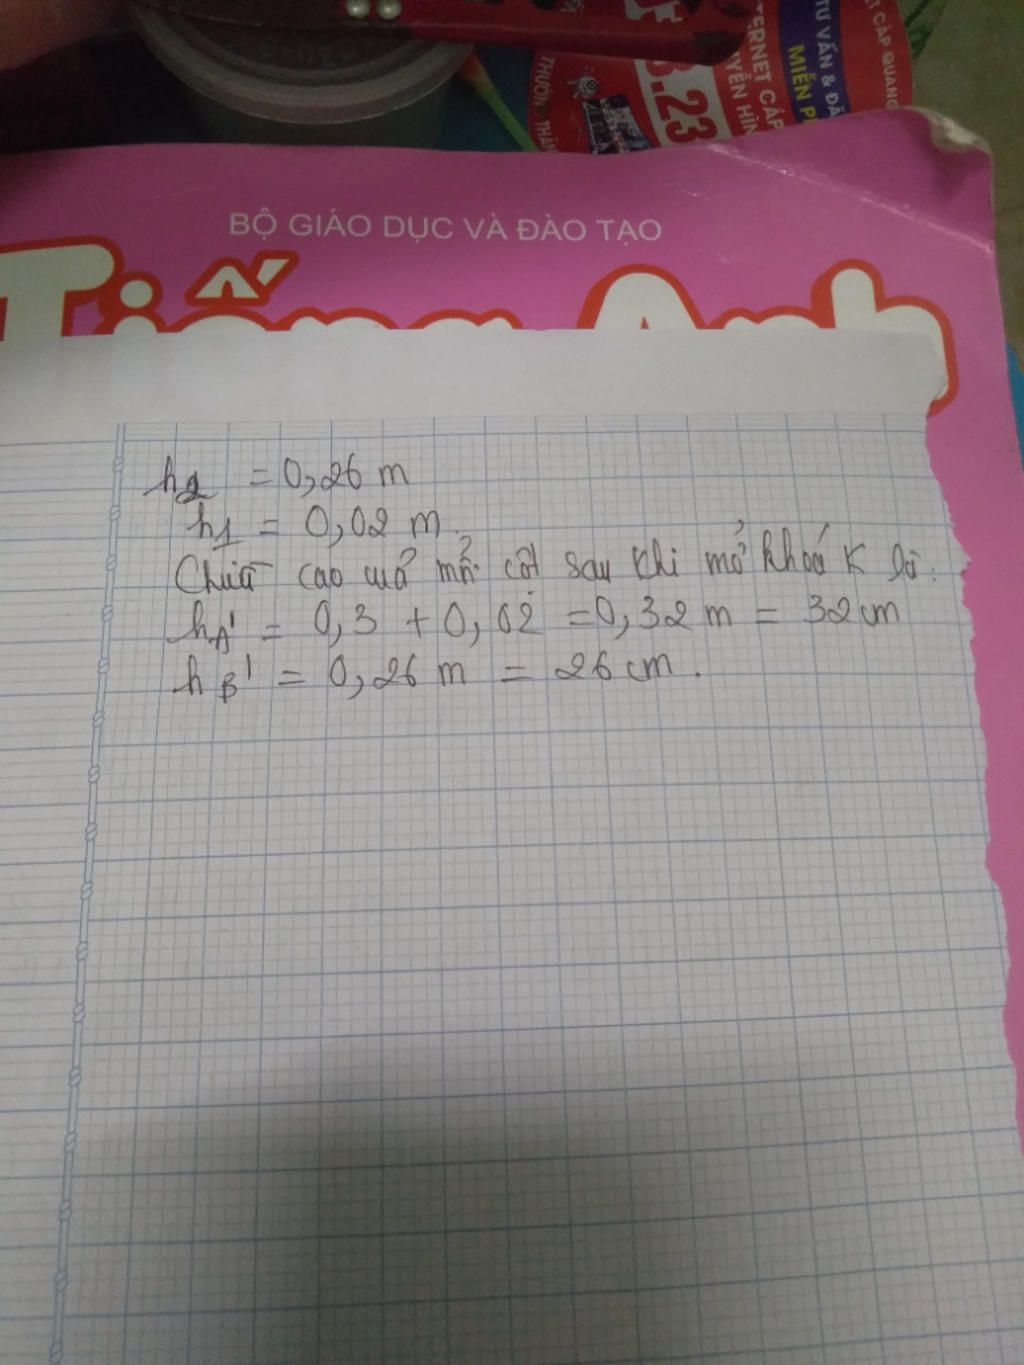 THUỘN. THÁN
.23
ERNET CÁP
YỀN HÌN
TƯ VẤN & ĐĂ
MIỄN P
CÁP QUANG
BỘ GIÁO DỤC VÀ ĐÀO TẠO
Tiếng Anh
h2 = 0,26 m
h1 = 0,02 m.
cao mỗi cột sau khi mở khoá K là:
hA' = 0,3 + 0,02 = 0,32 m = 32 cm
hB' = 0,26 m = 26 cm.